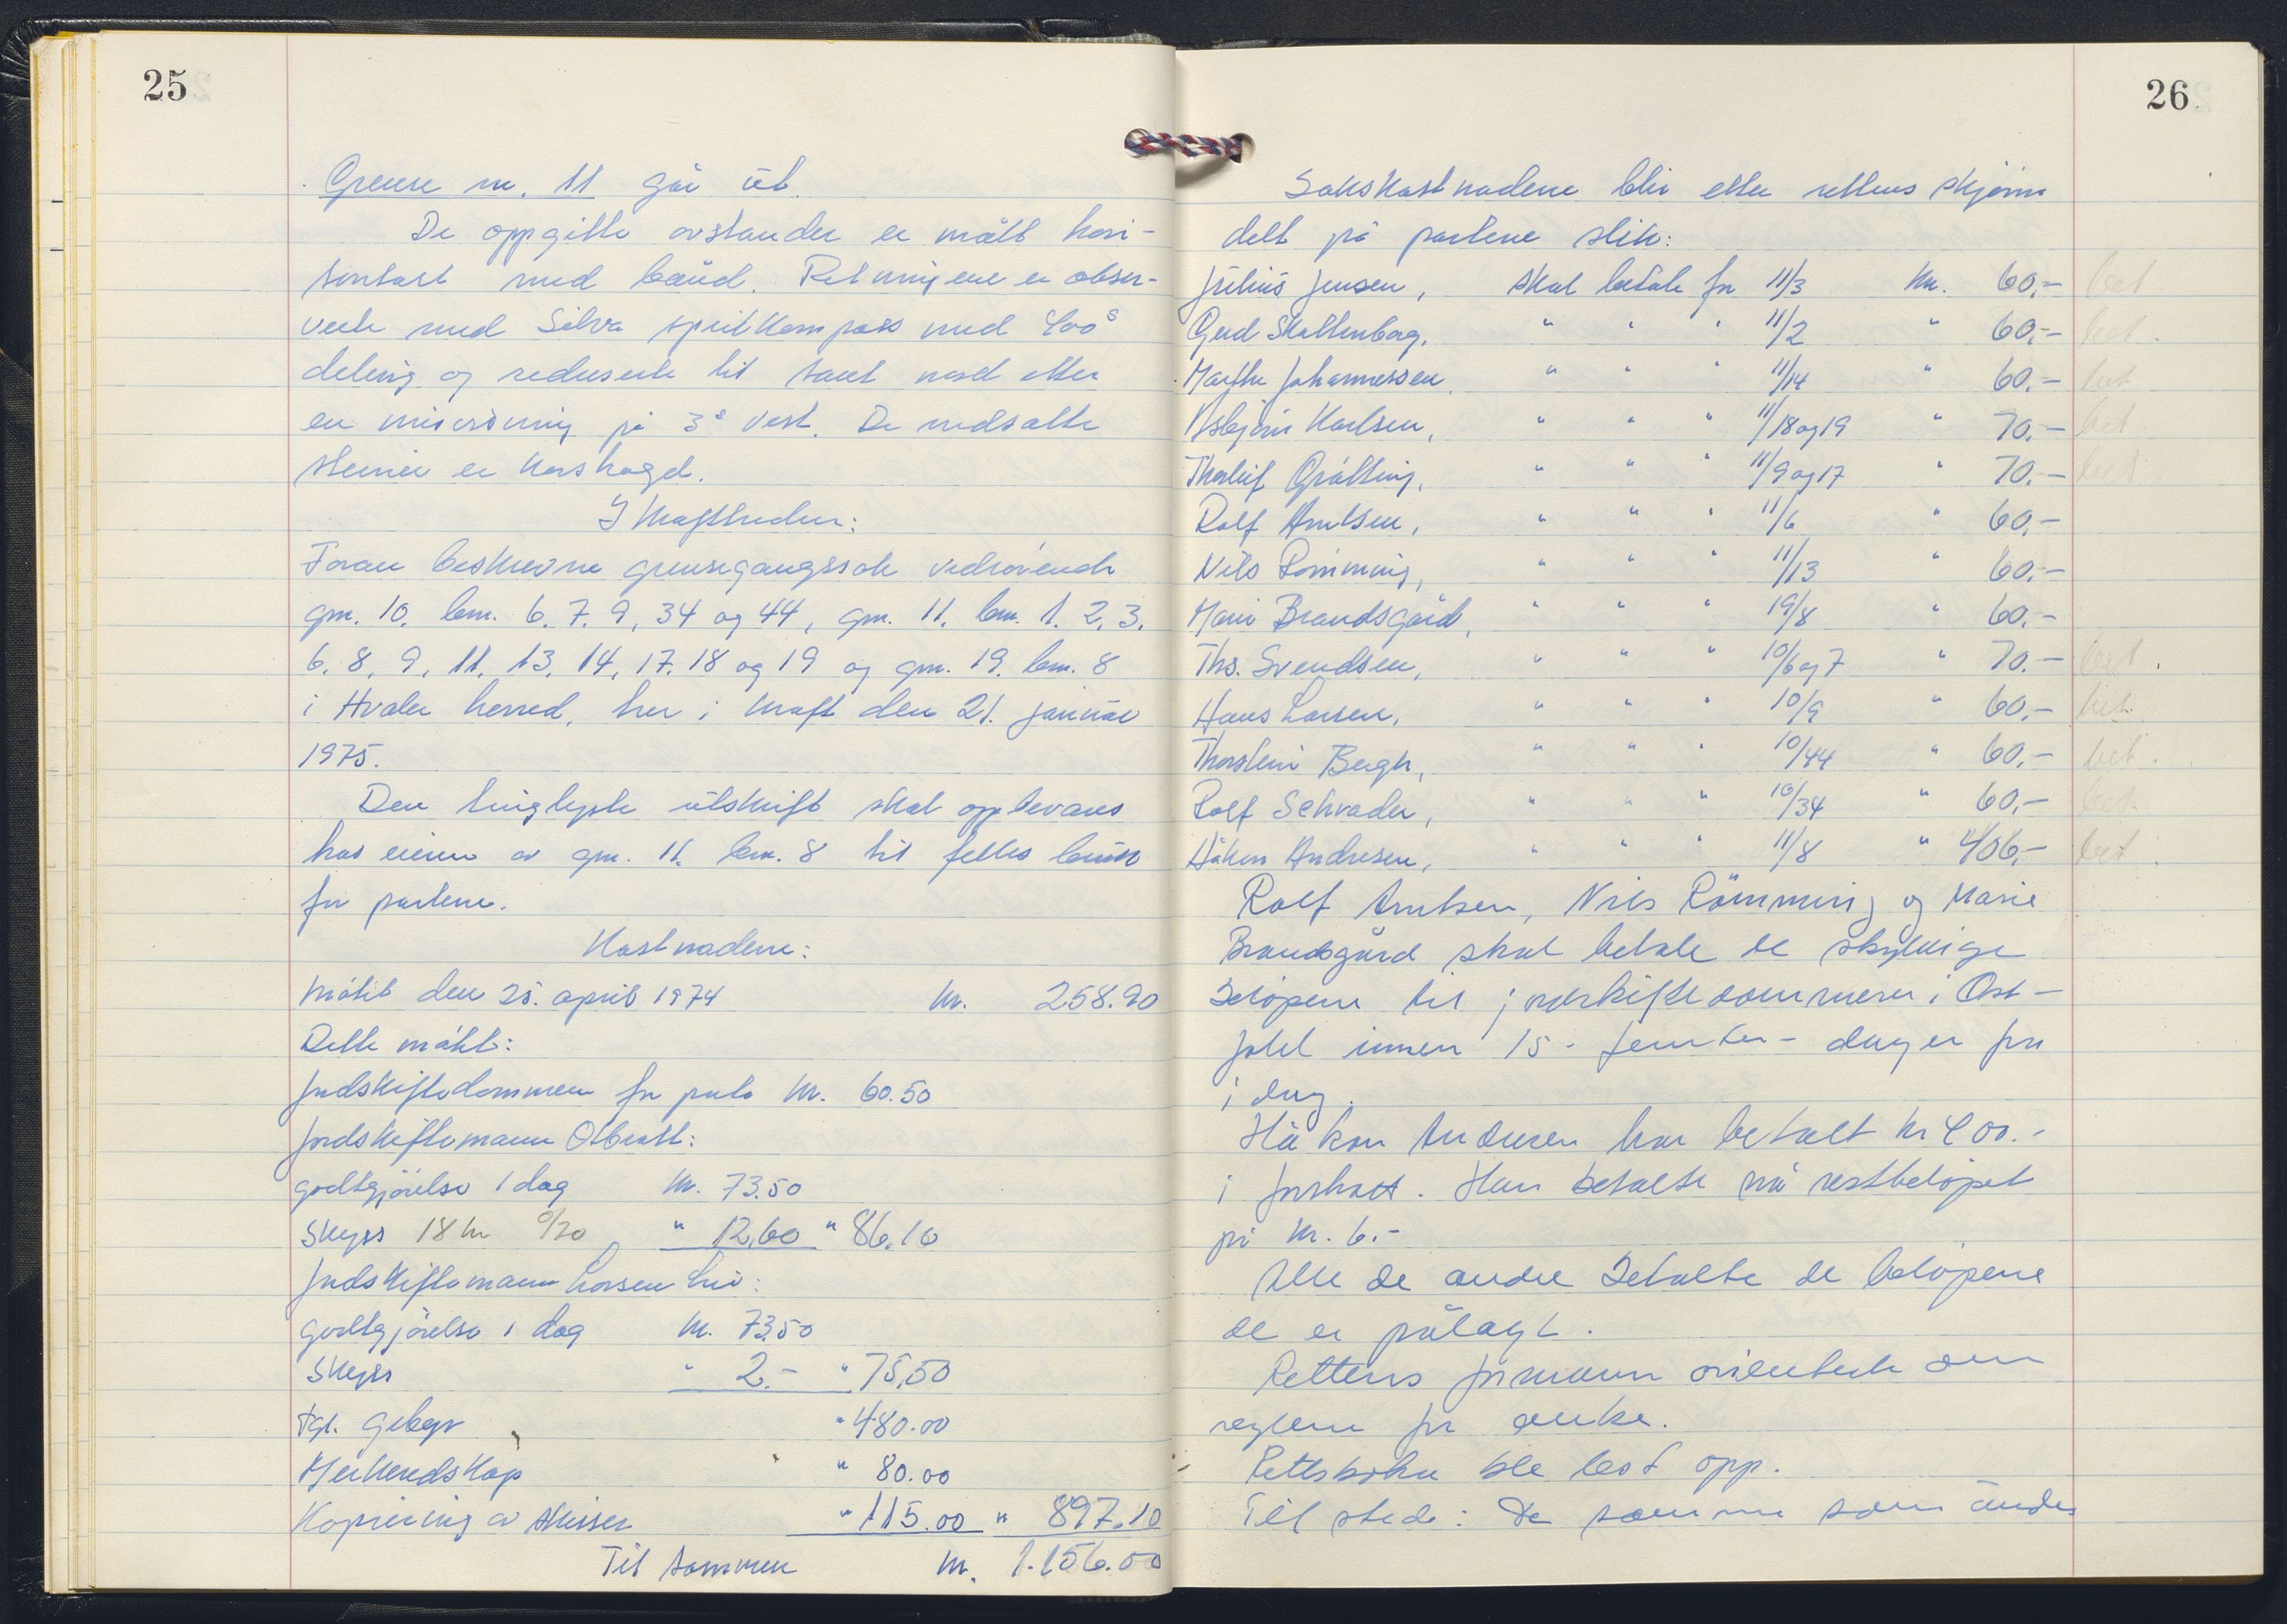 25
Grense nr. 11 går ut.
De oppgitte avstander er målt hori-
sontalt med bånd. Retningene er obser-
verte med Silva speilkompass med 400ᵍ
deling og reduserte til sant nord etter
en misvisning på 3ᵍ vest. De nedsatte
steiner er korshogd.
Ikrafttreden:
Foran beskrevne grensegangssak vedrørende
gnr. 10. bnr. 6. 7. 9, 34 og 44, gnr. 11. bnr. 1. 2. 3.
6. 8. 9. 11. 13. 14. 17. 18 og 19 og gnr. 19. bnr. 8
i Hvaler herred, trer i kraft den 21. januar
1975.
Den tinglyste utskrift skal oppbevares
hos eieren av gnr. 11. bnr. 8 til felles bruk
for partene.
Kostnadene:
Møtet den 25. april 1974 kr. 258.90
Dette møtet:
Jordskiftedommeren for porto kr. 60.50
Jordskiftemann Olbratt:
godtgjørelse 1 dag kr. 73.50
Skyss 18 km 0/70 " 12,60 " 86.10
Jordskiftemann Larsen Lie:
godtgjørelse 1 dag kr. 73.50
Skyss " 2.- " 75,50
Tgl. Gebyr " 480.00
Merkredskap " 80.00
Kopiering av skisser " 115.00 " 897.10
Til sammen kr. 1.156.00
26
Sakskostnadene blir etter rettens skjønn
delt på partene slik:
Julius Jensen, skal betale for 11/3 kr. 60.- bet
Gerd Skattenborg, " " " 11/2 " 60.- bet.
Marthe Johannessen, " " " 11/14 " 60.- bet
Asbjørn Karlsen, " " " 11/18 og 19 " 70.- bet.
Thorleif Gråtting, " " " 11/9 og 17 " 70.- bet
Rolf Arntsen, " " " 11/6 " 60.-
Nils Rømming, " " " 11/13 " 60.-
Marie Brandsgård, " " " 19/8 " 60.-
Ths. Svendsen, " " " 10/6 og 7 " 70.- bet.
Hans Larsen, " " " 10/9 " 60.- bet.
Thorstein Bergh, " " " 10/44 " 60.- bet.
Rolf Schrader, " " " 10/34 " 60.- bet.
Håkon Andresen, " " " 11/8 " 406.- bet.
Rolf Arntsen, Nils Rømming og Marie
Brandsgård skal betale de skyldige
beløpene til jordskiftedommeren i Øst-
fold innen 15 - femten - dager fra
i dag.
Håkon Andresen har betalt kr 400.-
i forskott. Han betalte nå restbeløpet
på kr. 6.-
Alle de andre betalte de beløpene
de er pålagt.
Rettens formann orienterte om
reglene for anke.
Rettsboka ble lest opp.
Til stede: De samme som under